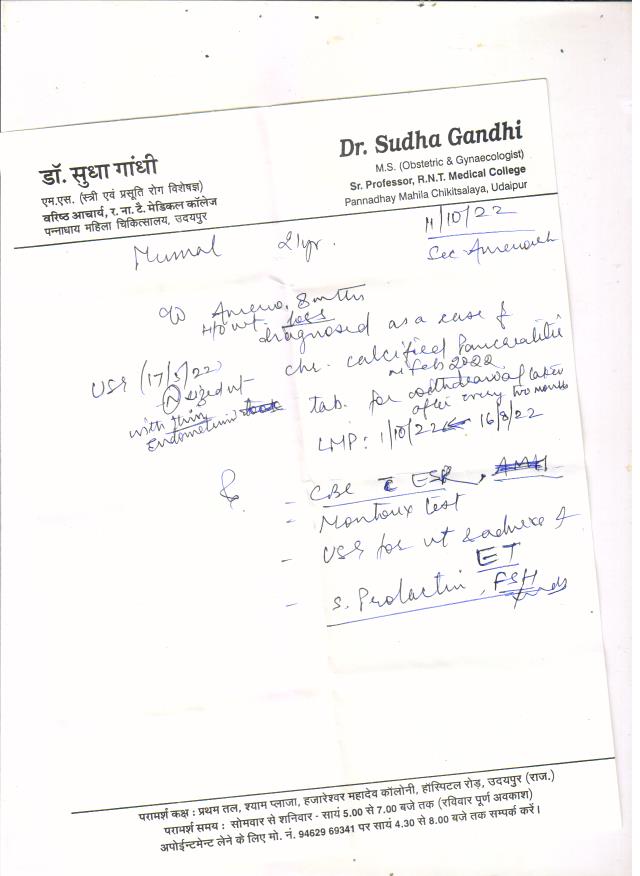 डॉ. सुधा गांधी
एम.एस. (स्त्री एवं प्रसूति रोग विशेषज्ञ)
वरिष्ठ आचार्य, र. ना. टै. मेडिकल कॉलेज
पन्नाधाय महिला चिकित्सालय, उदयपुर
Dr. Sudha Gandhi
M.S. (Obstetric & Gynaecologist)
Sr. Professor, R.N.T. Medical College
Pannadhay Mahila Chikitsalaya, Udaipur
11/10/22
Mumal 21yr.
Sec Amenorrh
Ameno. 8 mths
H/O wt. loss
diagnosed as a case of
chr. calcified Pancreatitis
in Feb 2022
USG (17/5/22)
N sized ut
with thin
Endometrium
tab. for withdrawal taken
after every two months
LMP: 1/10/22 ← 16/8/22
Rx
- CBC c ESR, AMH
- Montoux test
- USG for ut & adnexa &
ET
- S. Prolactin, FSH
परामर्श कक्ष : प्रथम तल, श्याम प्लाजा, हजारेश्वर महादेव कॉलोनी, हॉस्पिटल रोड़, उदयपुर (राज.)
परामर्श समय : सोमवार से शनिवार - सायं 5.00 से 7.00 बजे तक (रविवार पूर्ण अवकाश)
अपोईन्टमेन्ट लेने के लिए मो. नं. 94629 69341 पर सायं 4.30 से 8.00 बजे तक सम्पर्क करें।